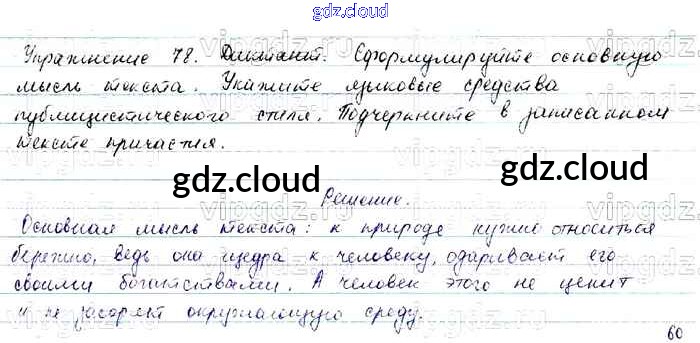 gdz.cloud
Упражнение 78. Диктант. Сформулируйте основную
мысль текста. Укажите языковые средства
публицистического стиля. Подчеркните в записанном
тексте причастия.
gdz.cloud gdz.cloud
Решение.
Основная мысль текста: к природе нужно относиться
бережно, ведь она щедра к человеку, одаривает его
своими богатствами. А человек этого не ценит
и не засоряет окружающую среду.
60